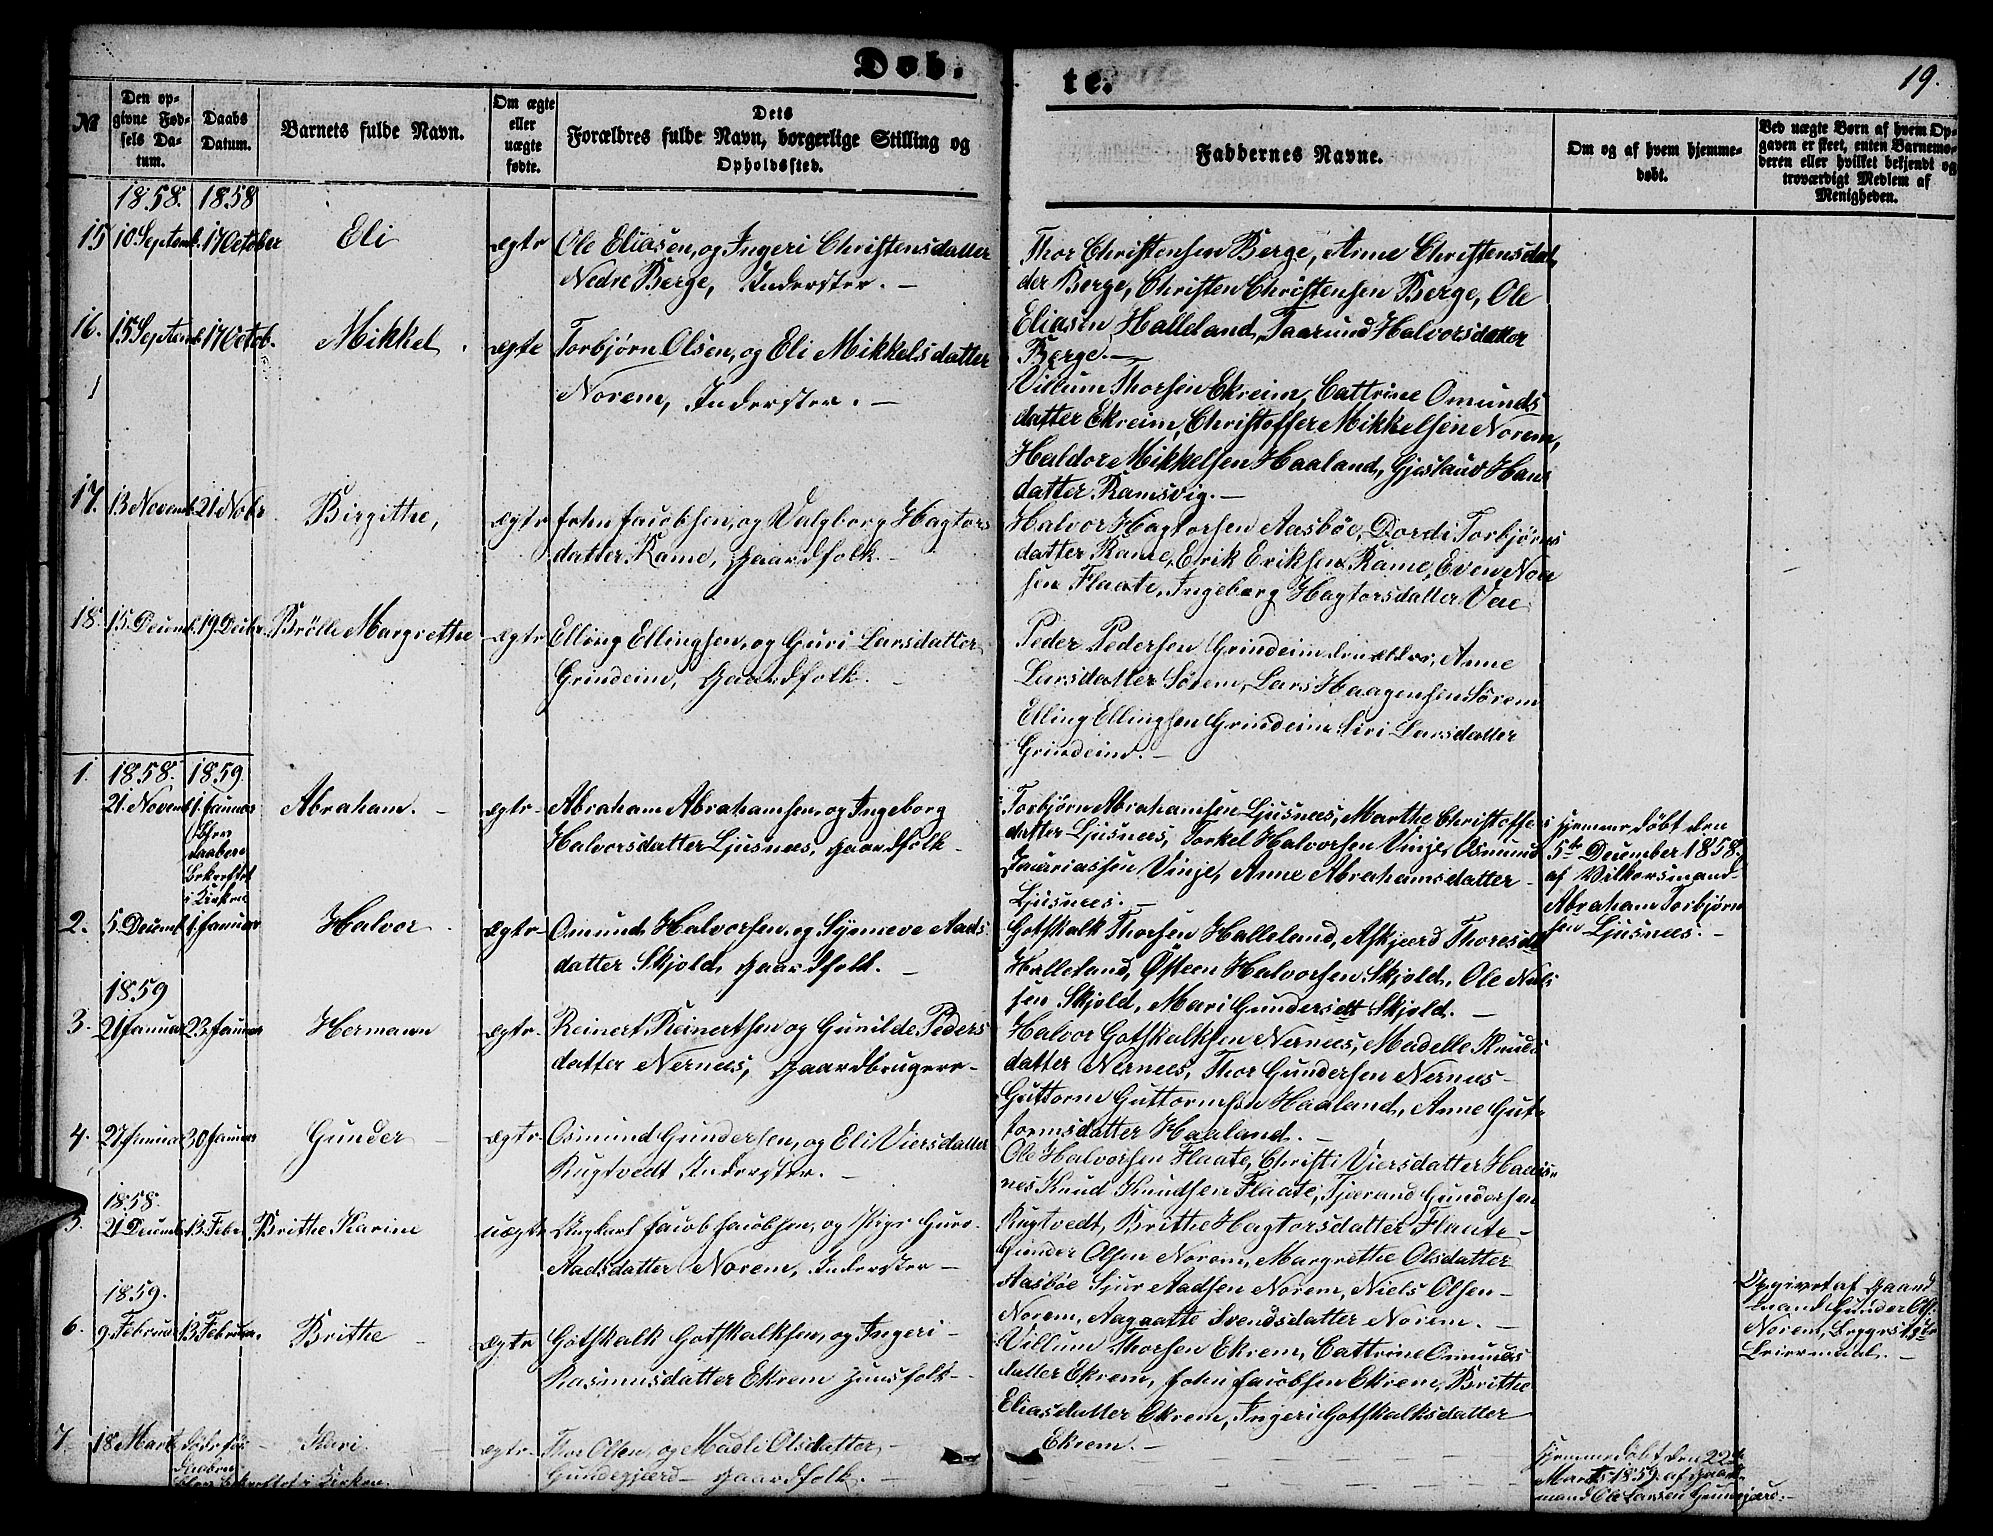 Døb.
te.
19.
№
Den op-
givne Fød-
sels Da-
tum.
Daabs
Datum.
Barnets fulde Navn.
Om ægte
eller
uægte
fødte.
Dets
Forældres fulde Navn, borgerlige Stilling og
Opholdssted.
Faddernes Navne.
Om og af hvem hjemme-
døbt.
Ved uægte Børn af hvem Op-
gaven er skeet, enten Barnemo-
deren eller hvilket bekjendt og
troværdigt Medlem af
Menigheden.
1858. 1858
15 10 Septemb. 17 October Eli ægte Ole Eliasen, og Ingeri Christensdatter
Nedre Berge, Inderster. –
Thor Christensen Berge, Anne Christensdat
der Berge, Christen Christensen Berge, Ole
Eliasen Halleland, Taarund Halvorsdatter
Berge. –
16. 15 Septemb. 17 Octob. Mikkel. ægte Torbjørn Olsen, og Eli Mikkelsdatter
Norem, Inderster. –
Villum Thorsen Ekreim, Cattrine Omunds
datter Ekreim, Christoffer Mikkelsen Norem,
Haldor Mikkelsen Haaland, Gjeslaud Hans
datter Ramsvig. –
17. 13 Novemb. 21 Nobr Birgithe, ægte John Jacobsen, og Valgborg Hagtors
datter Rame, Gaardfolk –
Halvor Hagtorsen Aasbøe, Dordi Torbjørns
datter Rame, Erik Eriksen Rame, Even Noe
sen Flaate, Ingeborg Hagtorsdatter Vee
18. 15. Decemb. 19. Decbr. Brølle Margrethe ægte Elling Ellingsen, og Guri Larsdatter
Grindeim, Gaardfolk. –
Peder Pedersen Grindeim den elder, Anne
Larsdatter Sørem, Lars Haagensen Sørem
Elling Ellingsen Grindeim Siri Larsdatter
Grindeim. –
1. 1858. 1859.
21. Novemb. 1. Januar Abraham. – ægte Abraham Abrahamsen, og Ingeborg
Halvorsdatter Ljusnes, Gaardfolk –
blev
daaben
bekræftet
i Kirken
Torbjørn Abrahamsen Ljusnes, Marthe Christoffers
datter Ljusnes, Torkel Halvorsen Vinje, Osmund
Zacariassen Vinje, Anne Abrahamsdatter –
Ljusnes. –
Hjemmedøbt den
5te December 1858.
af Vilkorsmand
Abraham Torbjørn
sen Ljusnes. –
2. 5. Decemb. 1. Januar Halvor. ægte Omund Halvorsen, og Synneve Aads
datter Skjold, Gaardfolk. –
Gotskalk Thorsen Halleland, Askjærd Thoresdtt
Halleland, Østeen Halvorsen Skjold, Ole Niel
sen Skjold, Mari Gundersdtt Skjold. –
1859
3. 21 Januar 23. Januar Hermann ægte Reinert Reinertsen og Gunilde Peders
datter Nernes, Gaardbrugere –
Halvor Gotskalksen Nernes, Madelle Knuds
datter Nernes, Thor Gundersen Nernes –
Guttorm Guttormsen Haaland, Anne Gut
tormsdatter Haaland. –
4. 27 Januar 30 Januar Gunder ægte Osmund Gundersen, og Eli Viersdatter
Rugtvedt Inderster. –
Ole Halvorsen Flaate, Christi Viersdatter
nes Knud Knudsen Flaate, Tjærand Gundersen
Rugtvedt, Brithe Hagtorsdatter Flaate –
1858.
5. 21 Decemb. 13. Febr. Brithe Karine uægte Ungkarl Jacob Jacobsen, og Pige Guro
Aadsdatter Norem, Inderster –
Gunder Olsen Norem, Margrethe Olsdatter
Aasbøe Sjur Aadsen Norem, Niels Olsen –
Norem, Aagaatte Svendsdatter Norem. –
Opgivet af Gaard
mand Gunder Ols.
Norem, begges 1ste
Leiermaal. –
1859.
6. 9. Februar 13. Februar. Brithe – ægte Gotskalk Gotskalksen, og Ingeri –
Rasmusdatter Ekrem Huusfolk –
Villum Thorsen Ekrem, Cattrine Omunds
datter Ekrem, John Jacobsen Ekrem, Brithe
Eliasdatter Ekrem, Ingeri Gotskalksdatter
Ekrem. –
7. 18 Marts Kari ægte Thor Olsen, og Madli Olsdatter, –
Gundegjerd – Gaardfolk. –
Daaben
blev bekræftet i Kirken
Hjemmedøbt den 22de
Marts 1859. af Gaard
mand Ole Larsen